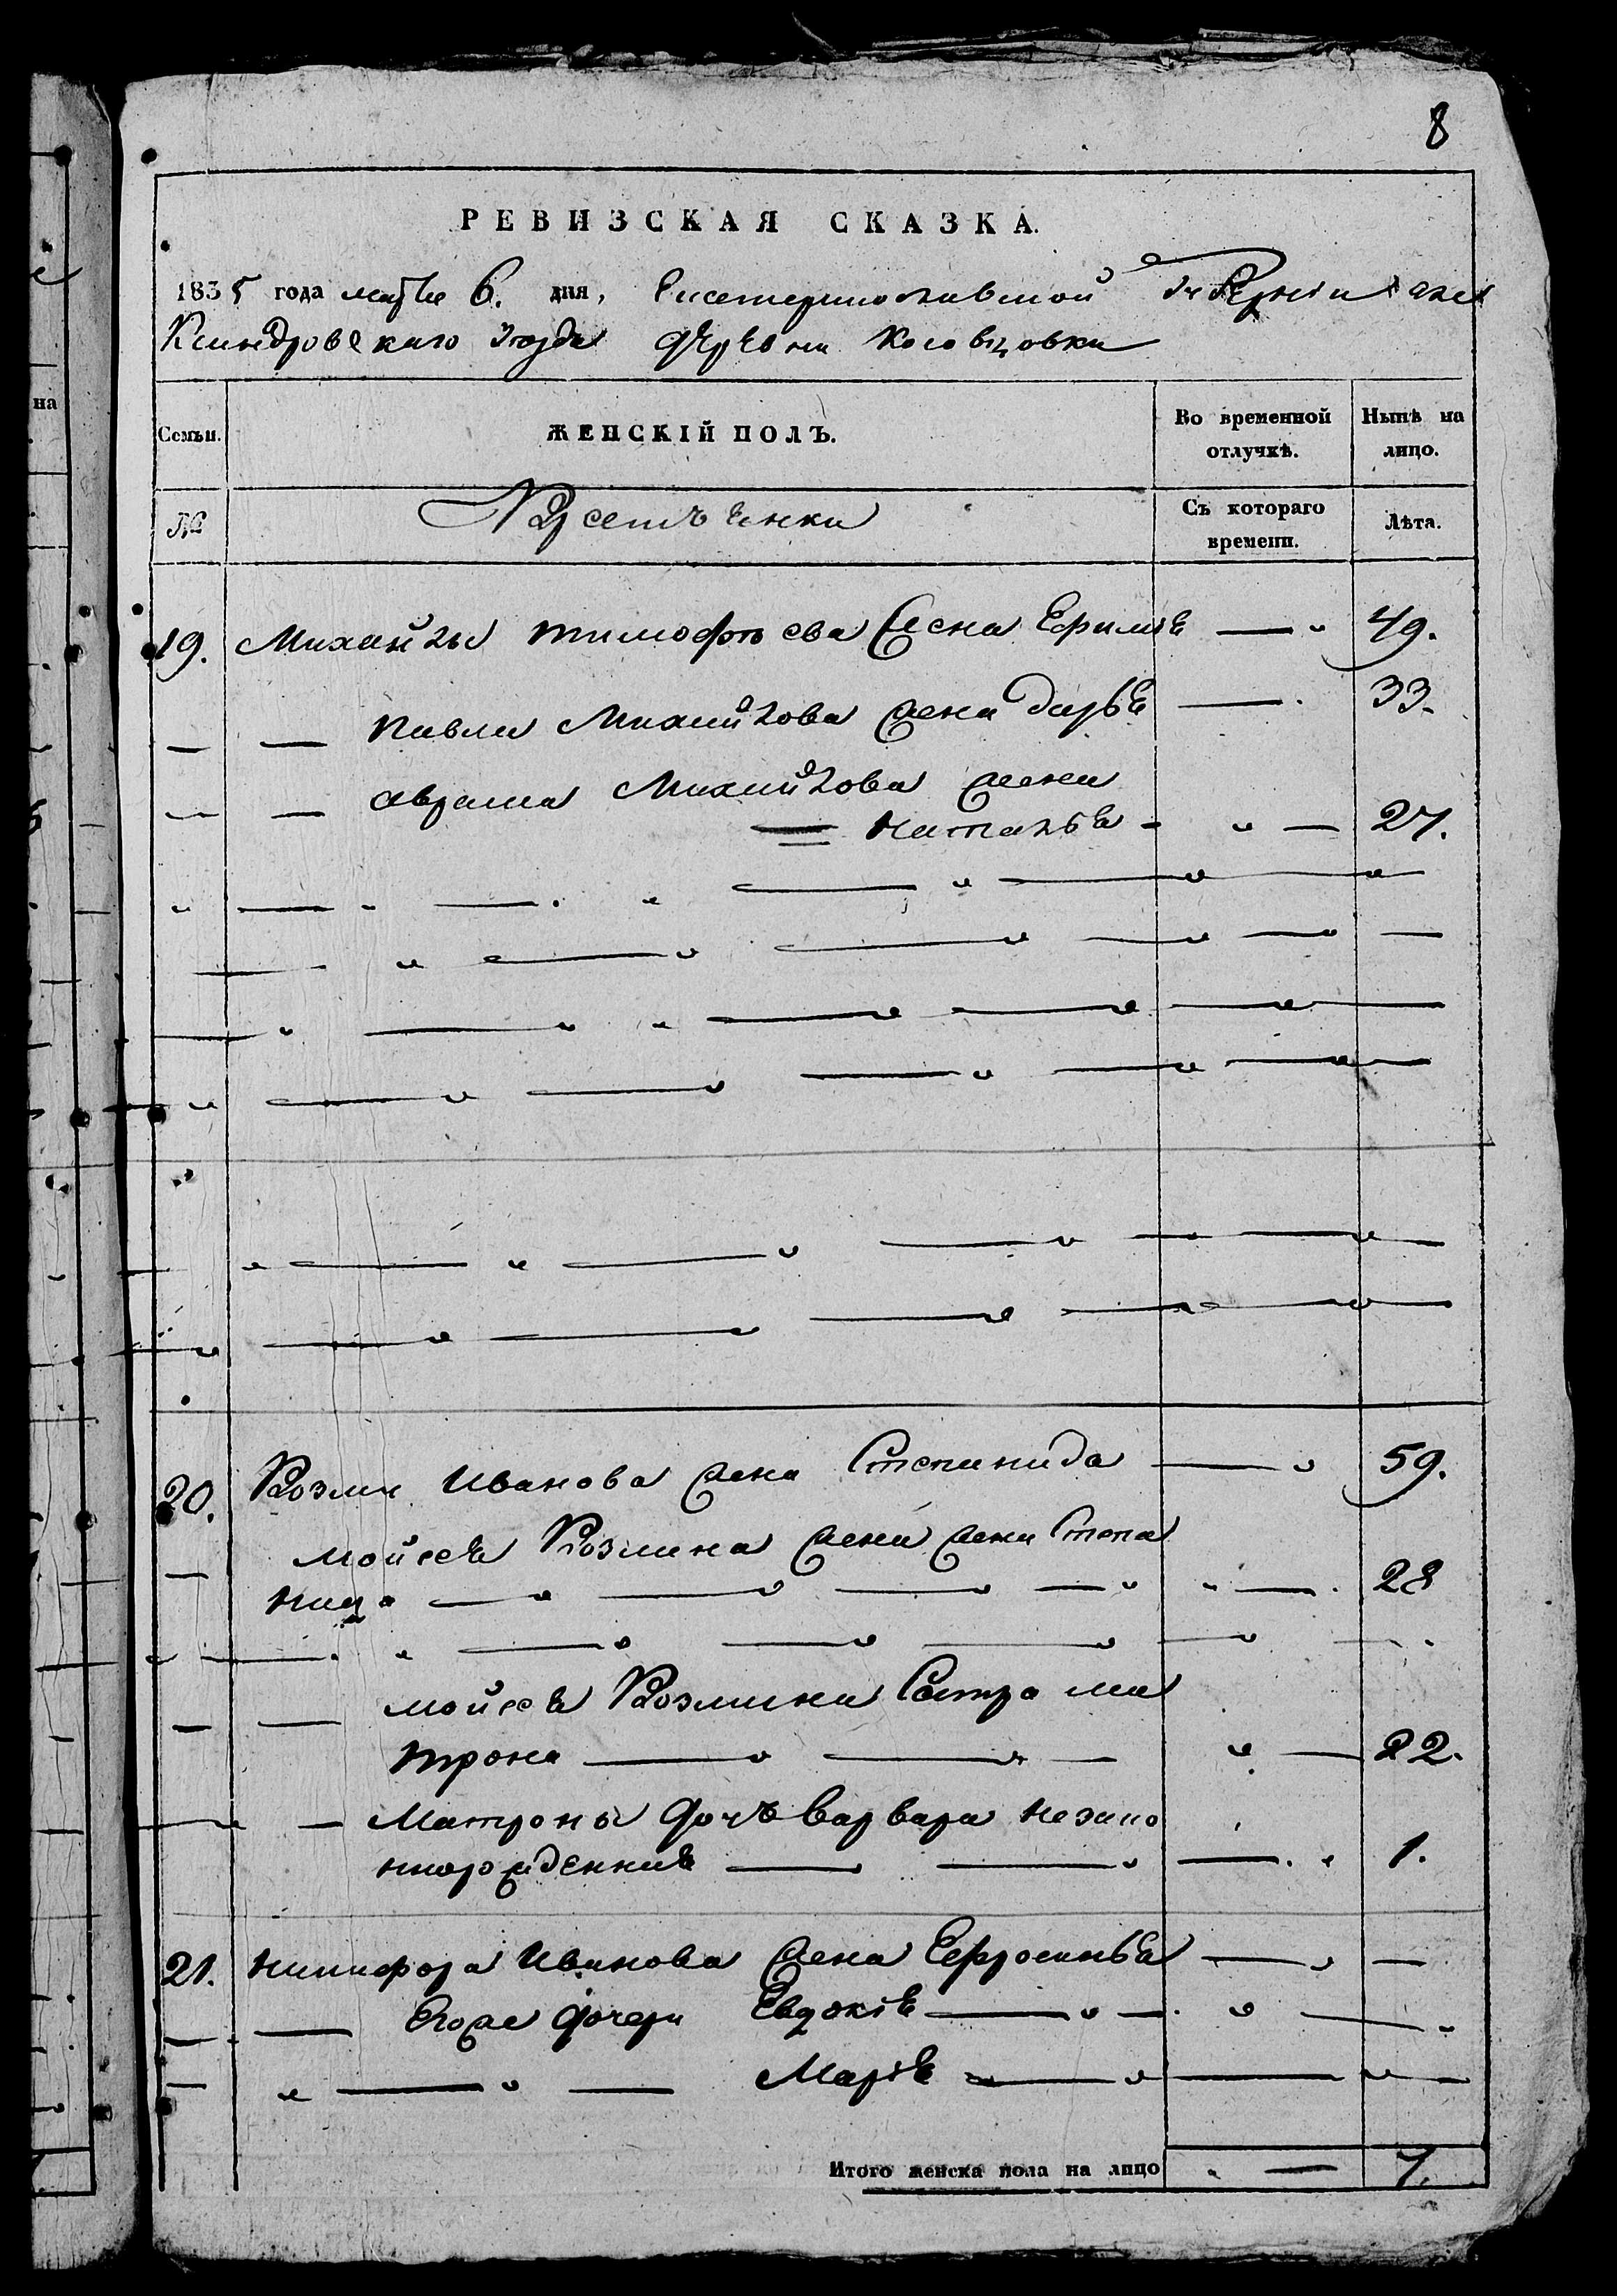 8
РЕВИЗСКАЯ СКАЗКА.
1835 года марта 6. дня, Екатеринославской Губерніи Алек
Ксандровскаго Уезда деревни
Семьи. ЖЕНСКІЙ ПОЛЪ. Во временной отлучкѣ. Нынѣ на лицо.
№ Крестьянки Съ котораго времени. Лѣта.
19. Михайлы тимофѣева жена — 49.
— — Павла Михайлова жена дарья — 33.
— — аврама Михайлова жена
Наталья — 27.
20. Козмы Иванова жена Степанида — 59.
мойсея Козмина жена жена Степа
нида — 28
— — мойсея Козмина Сестра ма
трона — 22.
— Матроны дочь варвара незако
ннорожденная — 1.
21. никифора Иванова жена Ефросинья — —
— — Егоже дочери Евдокія —
— Марія —
Итого женска пола на лицо — 7.